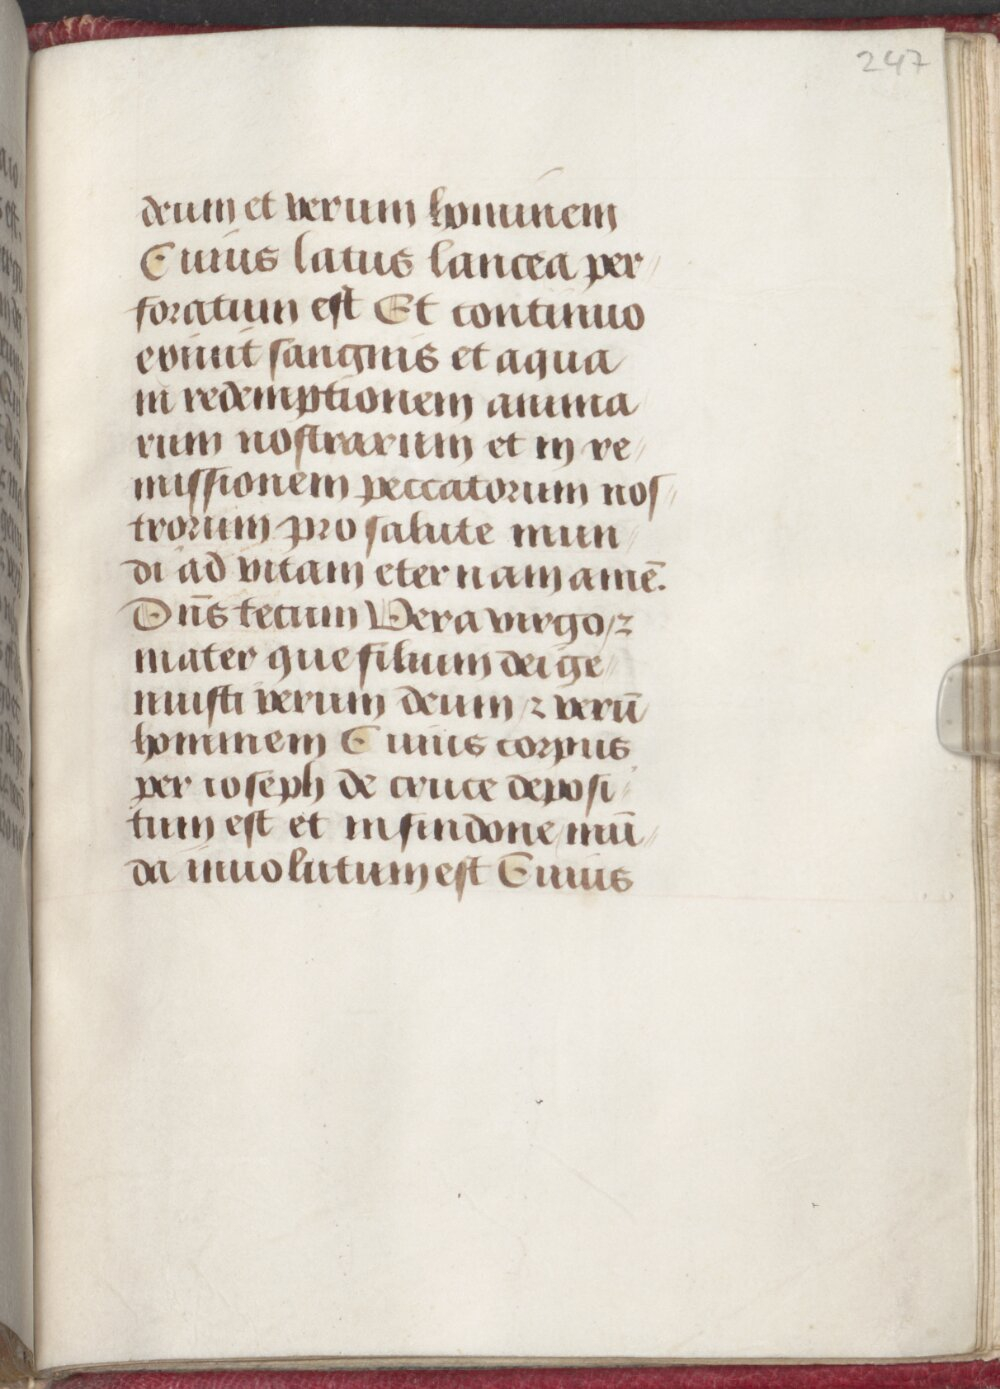 247
deum et verum hominem
Cuius latus lancea per
foratum est Et continuo
exiuit sanguis et aqua
in redemptionem anima
rum nostrarum et in re
missionem peccatorum nos
trorum pro salute mun
di ad vitam eternam amē.
Dn̄s tecum Vera virgo ⁊
mater que filium dei ge
nuisti verum deum ⁊ verū
hominem Cuius corpus
per ioseph de cruce deposi
tum est et in sindone mū
da inuolutum est Cuius